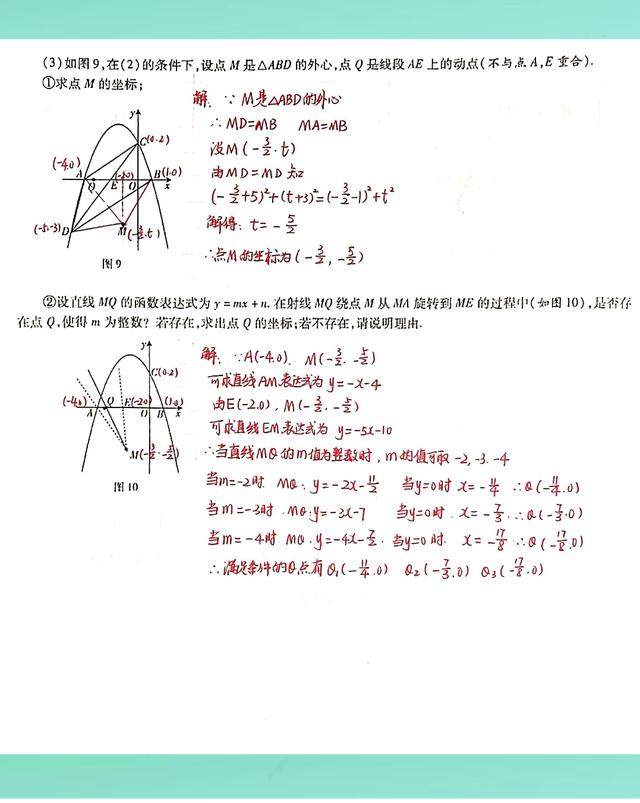 (3)如图9,在(2)的条件下,设点M是△ABD的外心,点Q是线段AE上的动点(不与点A,E重合).
①求点M的坐标;
解: ∵M是△ABD的外心
∴MD=MB MA=MB
设M(-3/2, t)
由MD=MD知
(-3/2+5)²+(t+3)²=(-3/2-1)²+t²
解得: t=-5/2
∴点M的坐标为(-3/2, -5/2)
y
C(0.2)
(-4.0)
A
Q
E
(-2.0)
O
B
(1.0)
x
(-5.-3)
D
M(-3/2.t)
图9
②设直线MQ的函数表达式为y=mx+n.在射线MQ绕点M从MA旋转到ME的过程中(如图10),是否存
在点Q,使得m为整数?若存在,求出点Q的坐标;若不存在,请说明理由.
y
C(0.2)
(-4.0)
A
Q
E(-2.0)
O
(1.0)
B
x
M(-3/2.-5/2)
图10
解: ∵A(-4.0). M(-3/2.-5/2)
可求直线AM表达式为 y=-x-4
由E(-2.0), M(-3/2.-5/2)
可求直线EM表达式为 y=-5x-10
∴当直线MQ的m值为整数时, m的值可取 -2, -3. -4
当m=-2时 MQ: y=-2x-11/2 当y=0时 x=-11/4 ∴Q(-11/4.0)
当m=-3时 MQ:y=-3x-7 当y=0时. x=-7/3 ∴Q(-7/3.0)
当m=-4时 MQ:y=-4x-7/2. 当y=0时. x=-17/8 ∴Q(-17/8.0)
∴满足条件的Q点有Q₁(-11/4.0) Q₂(-7/3.0) Q₃(-17/8.0)